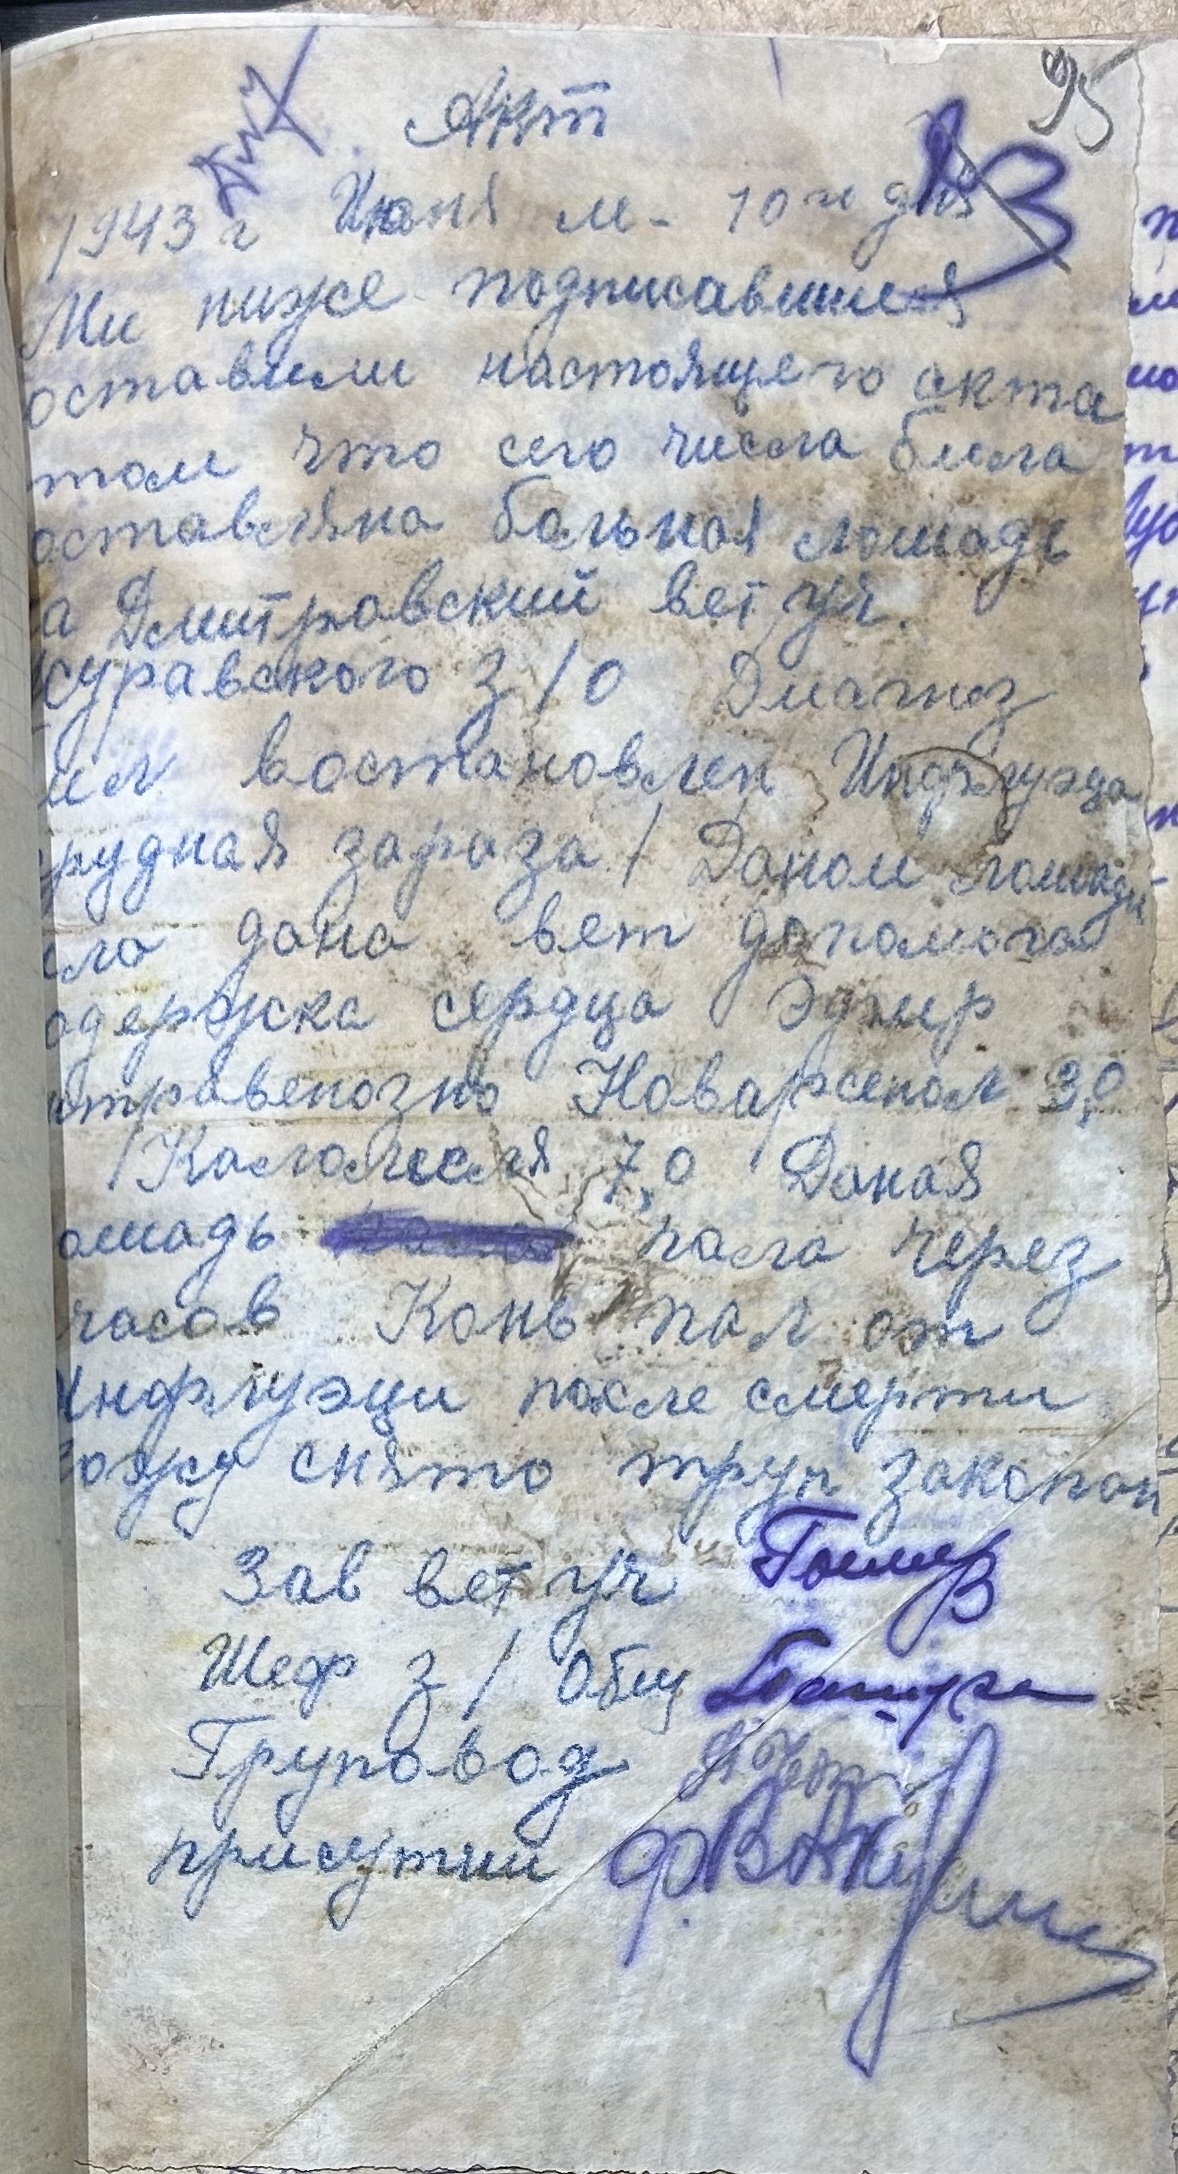 95
Акт
1943 г Июня м- 10 го дня
Ми ниже подписавшиеся
оставили настоящего акта
том что сего числа била
оставляна больная лошадь
а Дмитровский вет уч.
журавского З/О Диагноз
ил востановлен Инфлуэца
рудная зараза/ Даном лошади
ло дана вет допомога
одержка сердца Эфир
нтравенозно Новарсенол 3,0
/Каломеля 7,0 Даная
ошадь пала через
часов Конь пал от
Инфлуэци после смерти
кожу снято труп закопан
Зав вет уч
Шеф з/общ
Груповод
присутни